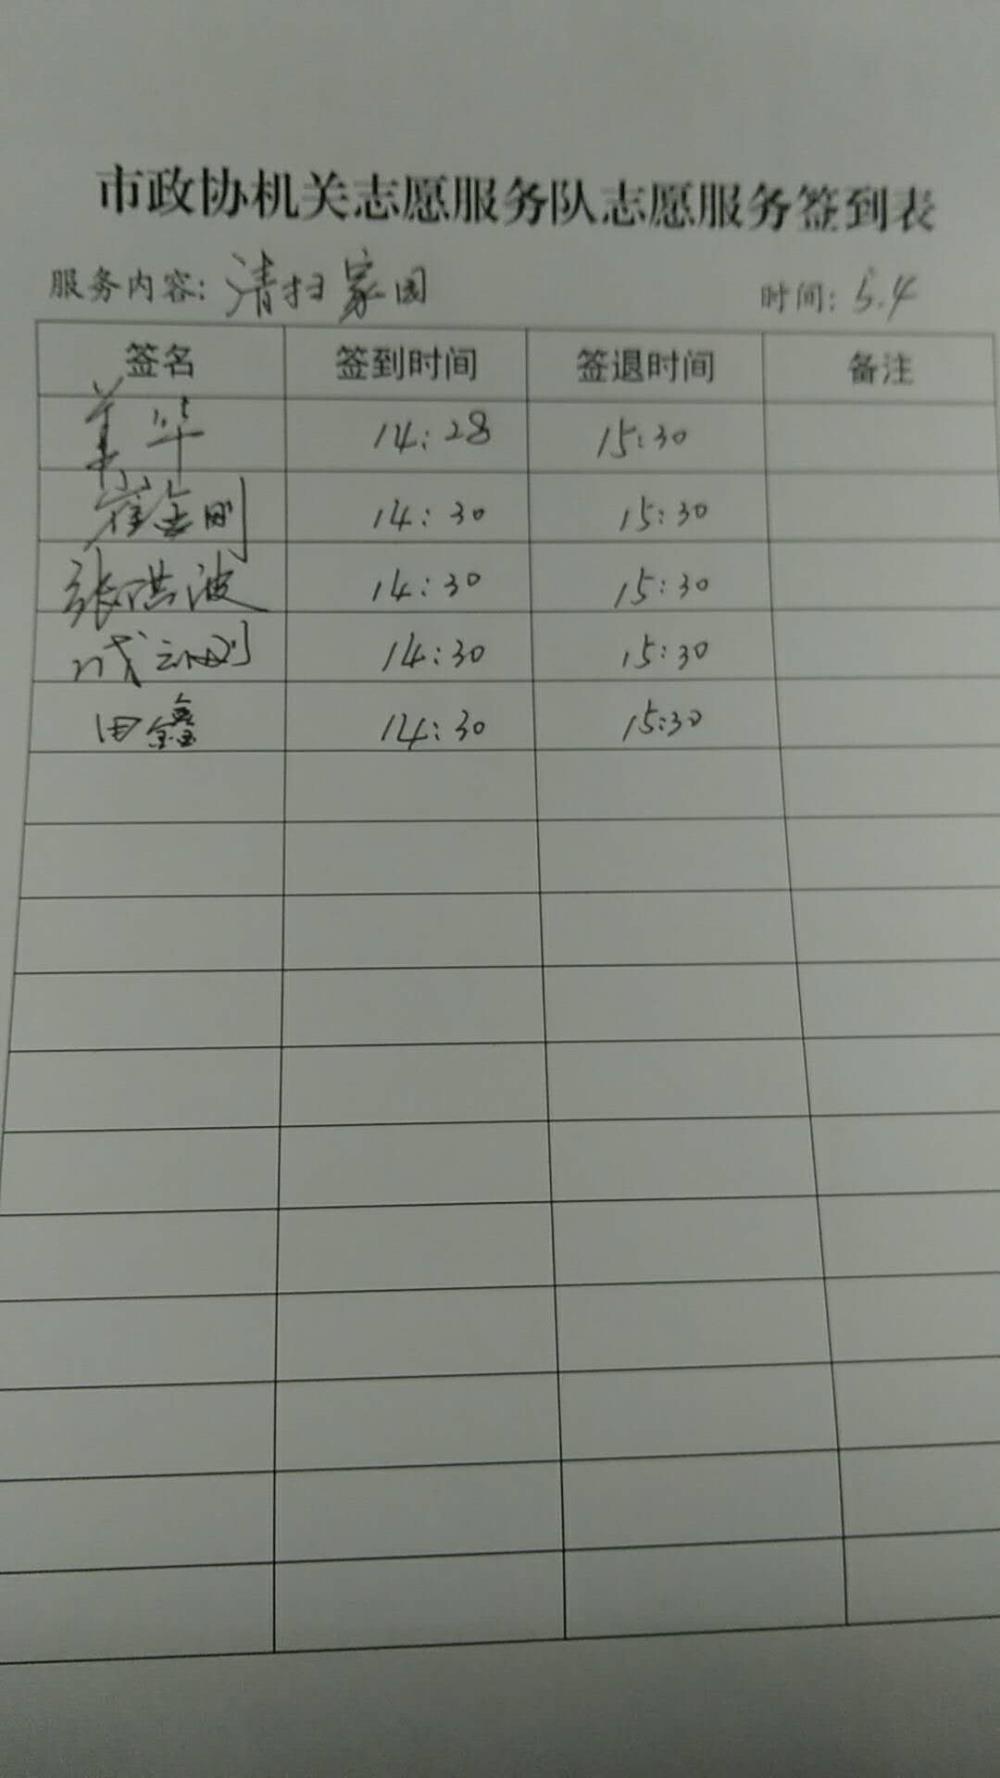 市政协机关志愿服务队志愿服务签到表
服务内容: 清扫家园 时间: 5.4
签名 签到时间 签退时间 备注
姜华 14:28 15:30
崔金刚 14:30 15:30
张洪波 14:30 15:30
14:30 15:30
田鑫 14:30 15:30